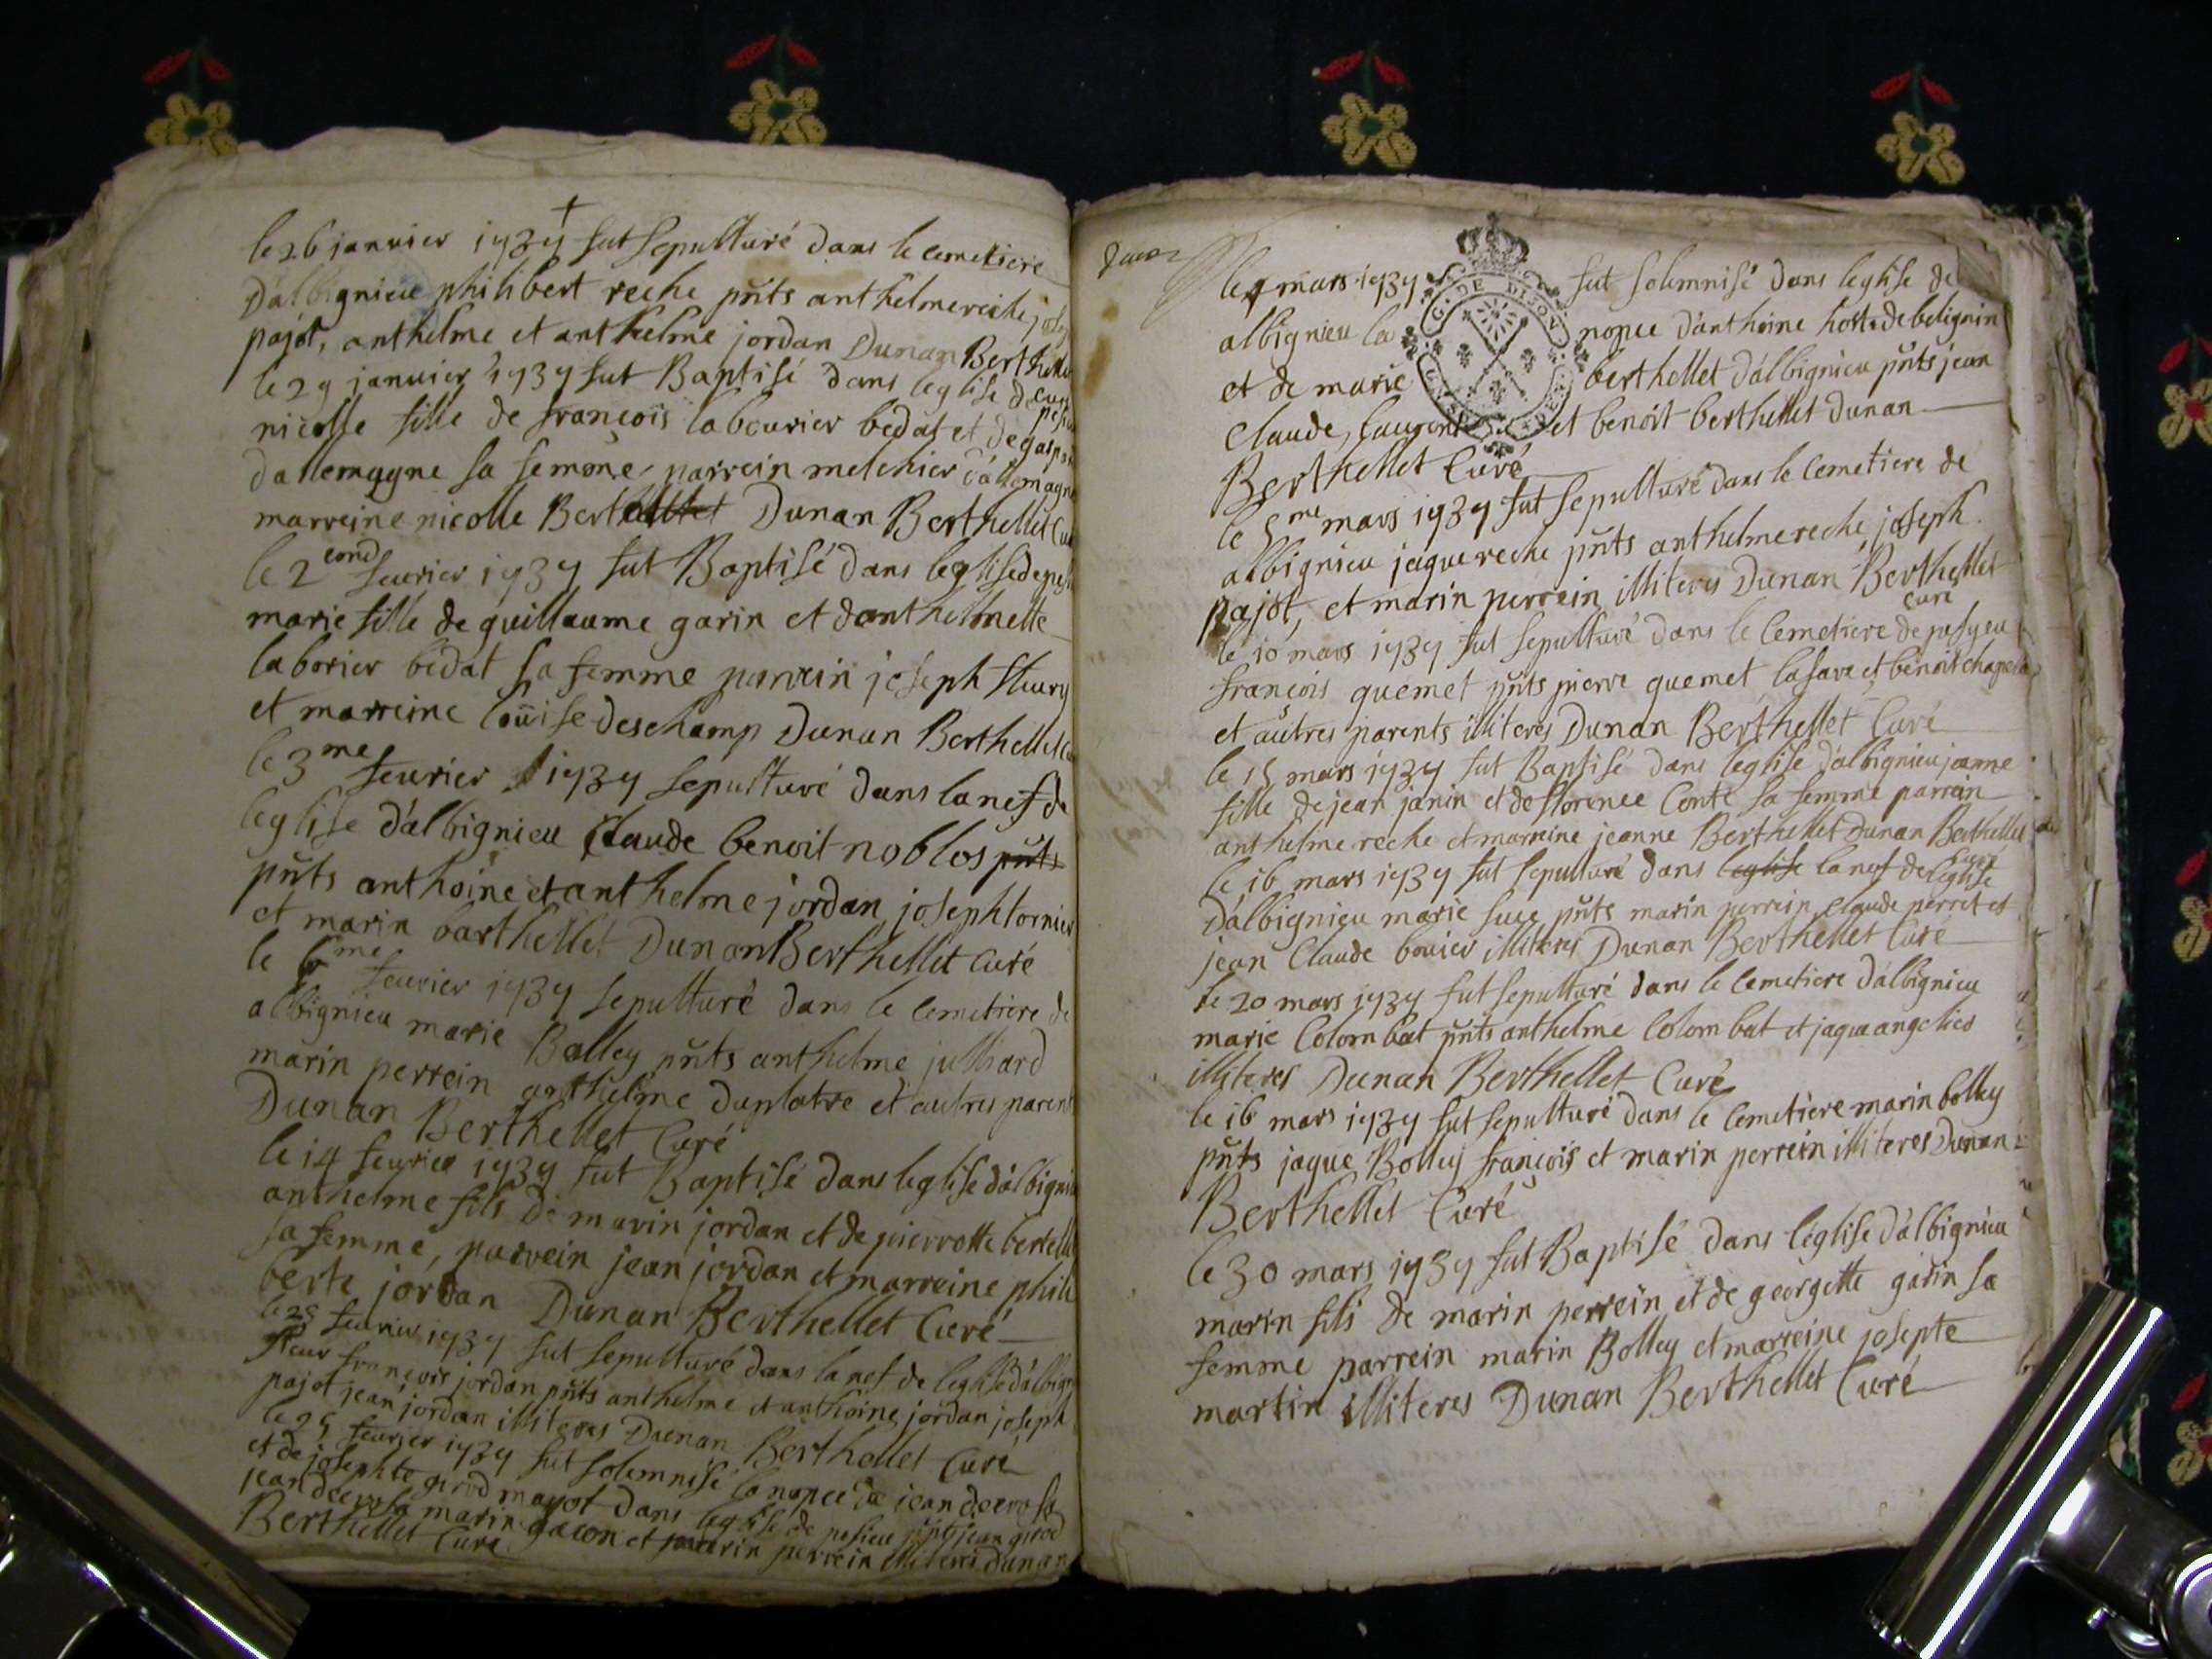 le 26 janvier 1739 fut sepulturé dans le cemetiere
d'albignieu philibert reche pñts anthelme reiche
pajot, anthelme et anthelme jordan Dunan Berthellet
le 29 janvier 1739 fut Baptisé dans leglise de
curé
nicolle fille de françois labourier bedat et de
dallemagne sa femme, parrein melchier d'allemagne
marreine nicolle Berthellet Dunan Berthellet Cu
le 2cond feurier 1739 fut Baptisé dans leglise de
marie fille de guillaume garin et danthelmette
laborier bedat sa femme parrein joseph fleury
et marreine loüise deschamp Dunan Berthellet
le 3me feurier 1739 sepulturé dans la nef de
leglise d'albignieu Claude benoit noblos pñts
pñts anthoine et anthelme jordan joseph tornier
et marin barthellet Dunan Berthellet curé
le 6me feurier 1739 sepulturé dans le cemetiere de
albignieu marie Bolley pñts anthelme julliard
marin perrein anthelme duplatre et autres parent
Dunan Berthellet Curé
le 14 feurier 1739 fut Baptisé dans leglise d'albignieu
anthelme fils de marin jordan et de pierrotte
sa femme, parrein jean jordan et marreine phili
berte jordan Dunan Berthellet Curé
feurier 1739 fut sepulturé dans la nef de leglise
françois jordan pñts anthelme et anthoine jordan joseph
pajot jean jordan illiteres Dunan Berthellet Curé
le 25 feurier 1739 fut solemnisé la nopce de jean decrosa
et de josephte girod mayot dans leglise de pesieu pñts jean girod
jean decrosa marin gacon et marin perrein illiteres dunan
Berthellet Curé
le 4 mars 1739 fut solemnisé dans leglise de
G. DE DIJON
albignieu la nopce d'anthoine hoste de belignin
et de marie berthellet d'albignieu pñts jean
Claude, laurent et benoit berthellet dunan
Berthellet Curé
le 5me mars 1739 fut sepulturé dans le cemetiere de
albignieu jaque reche pñts anthelme reche, joseph
pajot, et marin perrein illiteres Dunan Berthellet
curé
le 10 mars 1739 fut sepulturé dans le Cemetiere de pesyeu
françois quemet pñts pierre quemet lasare et benoit
et autres parents illiteres Dunan Berthellet Curé
le 15 mars 1739 fut Baptisé dans leglise d'albignieu jeanne
fille de jean janin et de florence Conte sa femme parrein
anthelme reche et marreine jeanne Berthellet Dunan Berthellet
curé
le 16 mars 1739 fut sepulturé dans leglise la nef de leglise
d'albignieu marie suce pñts marin perrein Claude perret et
jean Claude bouier illiteres Dunan Berthellet Curé
le 20 mars 1739 fut sepulturé dans le Cemetiere d'albignieu
marie Colombat pñts anthelme Colombat et jaque angelier
illiteres Dunan Berthellet Curé
le 16 mars 1739 fut sepulturé dans le Cemetiere marin bolley
pñts jaque Bolley françois et marin perrein illiteres Dunan
Berthellet Curé
le 30 mars 1739 fut Baptisé dans l'église d'albignieu
marin fils de marin perrein et de georgette garin sa
femme parrein marin Bolley et marreine josepte
martin illiteres Dunan Berthellet Curé